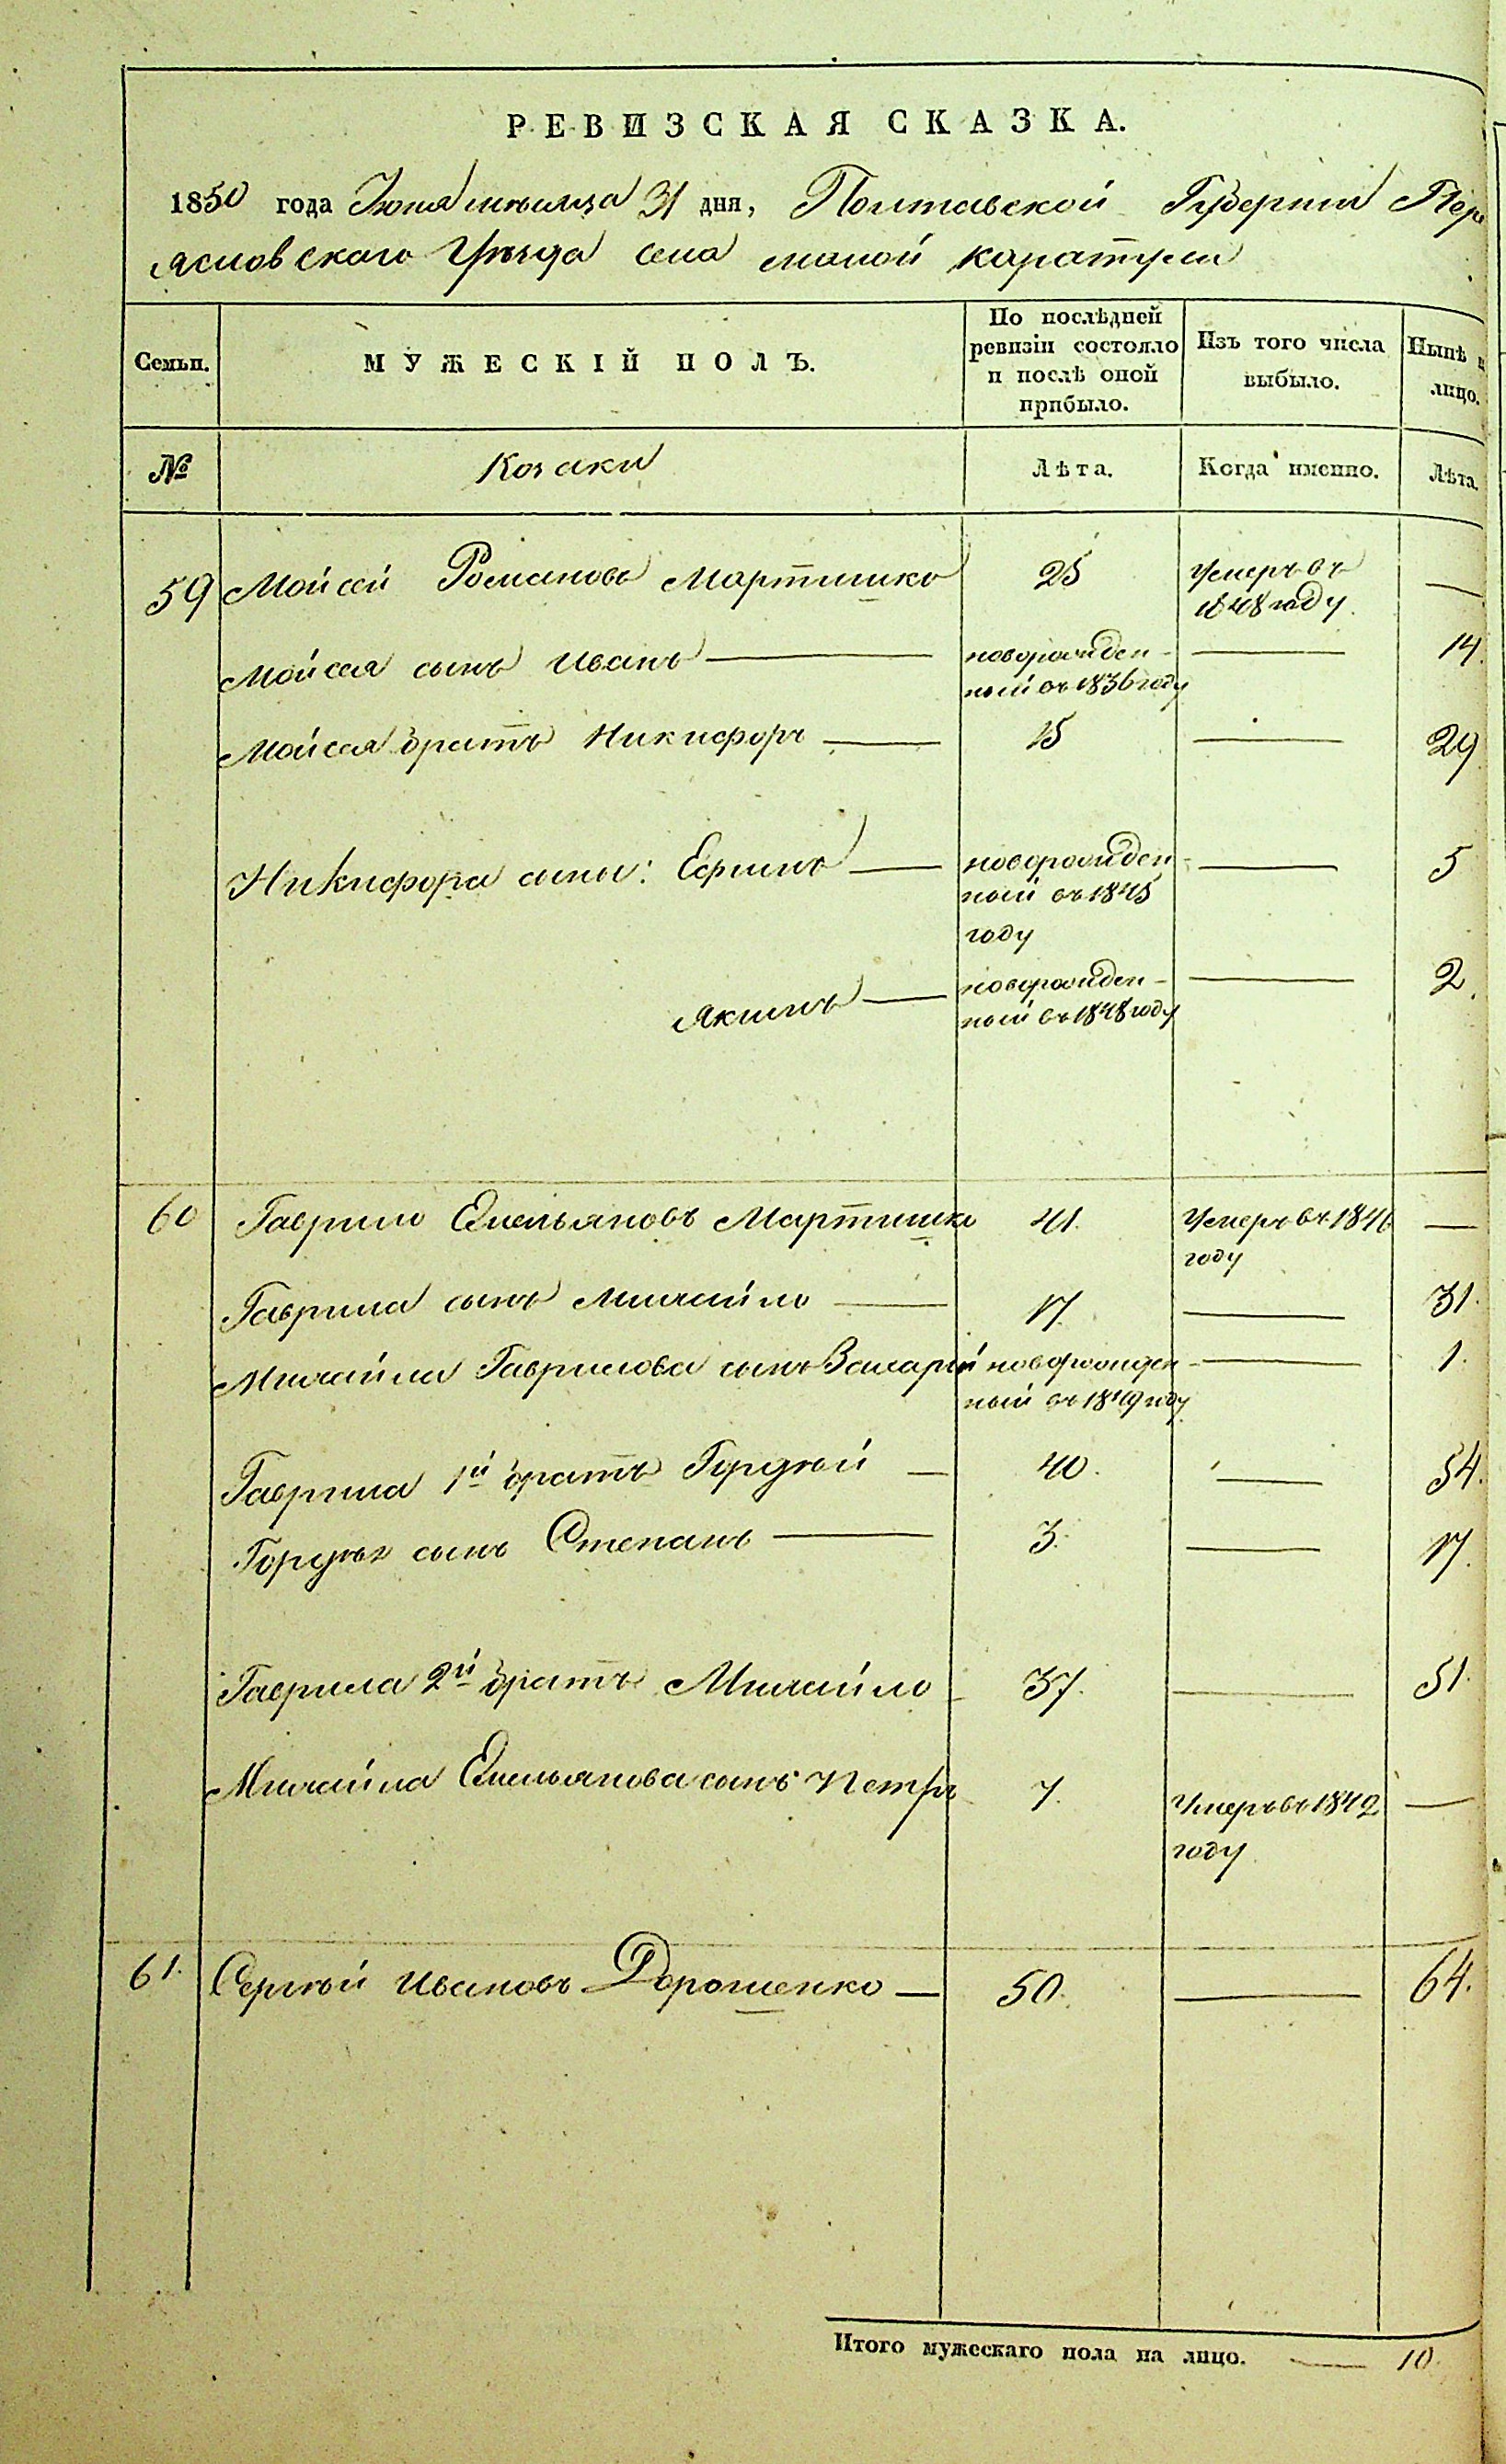 РЕВИЗСКАЯ СКАЗКА.
1850 года Іюля мѣсяца 31 дня, Полтавской Губерніи Пер
яславскаго Уѣзда села малой каратули
Семьи. МУЖЕСКІЙ ПОЛЪ. По послѣдней ревизіи состояло и послѣ оной прибыло. Изъ того числа выбыло. Нынѣ н лицо.
№ Козаки Лѣта. Когда именно. Лѣта.
59 Мойсей Романовъ Мартишко 25 Умеръ въ —
1848 году.
Мойсея сынъ Иванъ — новорожден- — 14.
ный въ 1836 году
Мойсея братъ Никифоръ — 15 — 29
Никифора сыны: Ефимъ — новорожден- — 5
ный въ 1845
году
Якимъ — новорожден- — 2.
ный въ 1848 году
60 Гаврило Емельяновъ Мартишко 41. Умеръ въ 1846 —
году
Гаврила сынъ Михайло — 17. — 31.
Михайла Гаврилова сынъ Захарій новорожден- — 1.
ный въ 1849 году
Гаврила 1й братъ Гордѣй — 40. — 54.
Гордѣя сынъ Степанъ — 3. — 17.
Гаврила 2й братъ Михайло — 37. — 51.
Михайла Емельянова сынъ Петръ 7. Умеръ въ 1842 —
году
61. Сергѣй Ивановъ Дорошенко — 50. — 64.
Итого мужескаго пола на лицо. — 10.